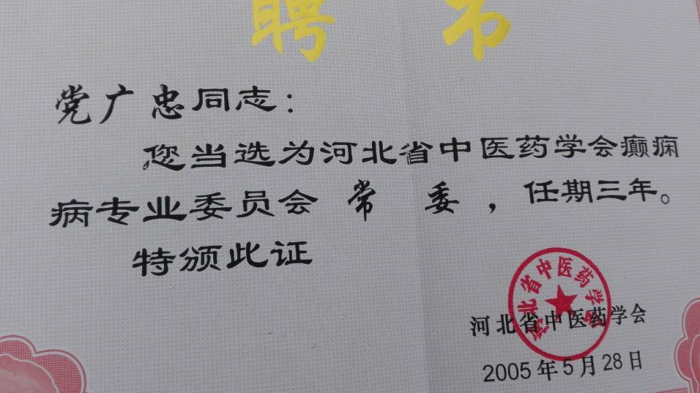 聘书
党广忠同志：
您当选为河北省中医药学会癫痫
病专业委员会 常 委 ，任期三年。
特颁此证
河北省中医药学会
河北省中医药学会
2005年5月28日